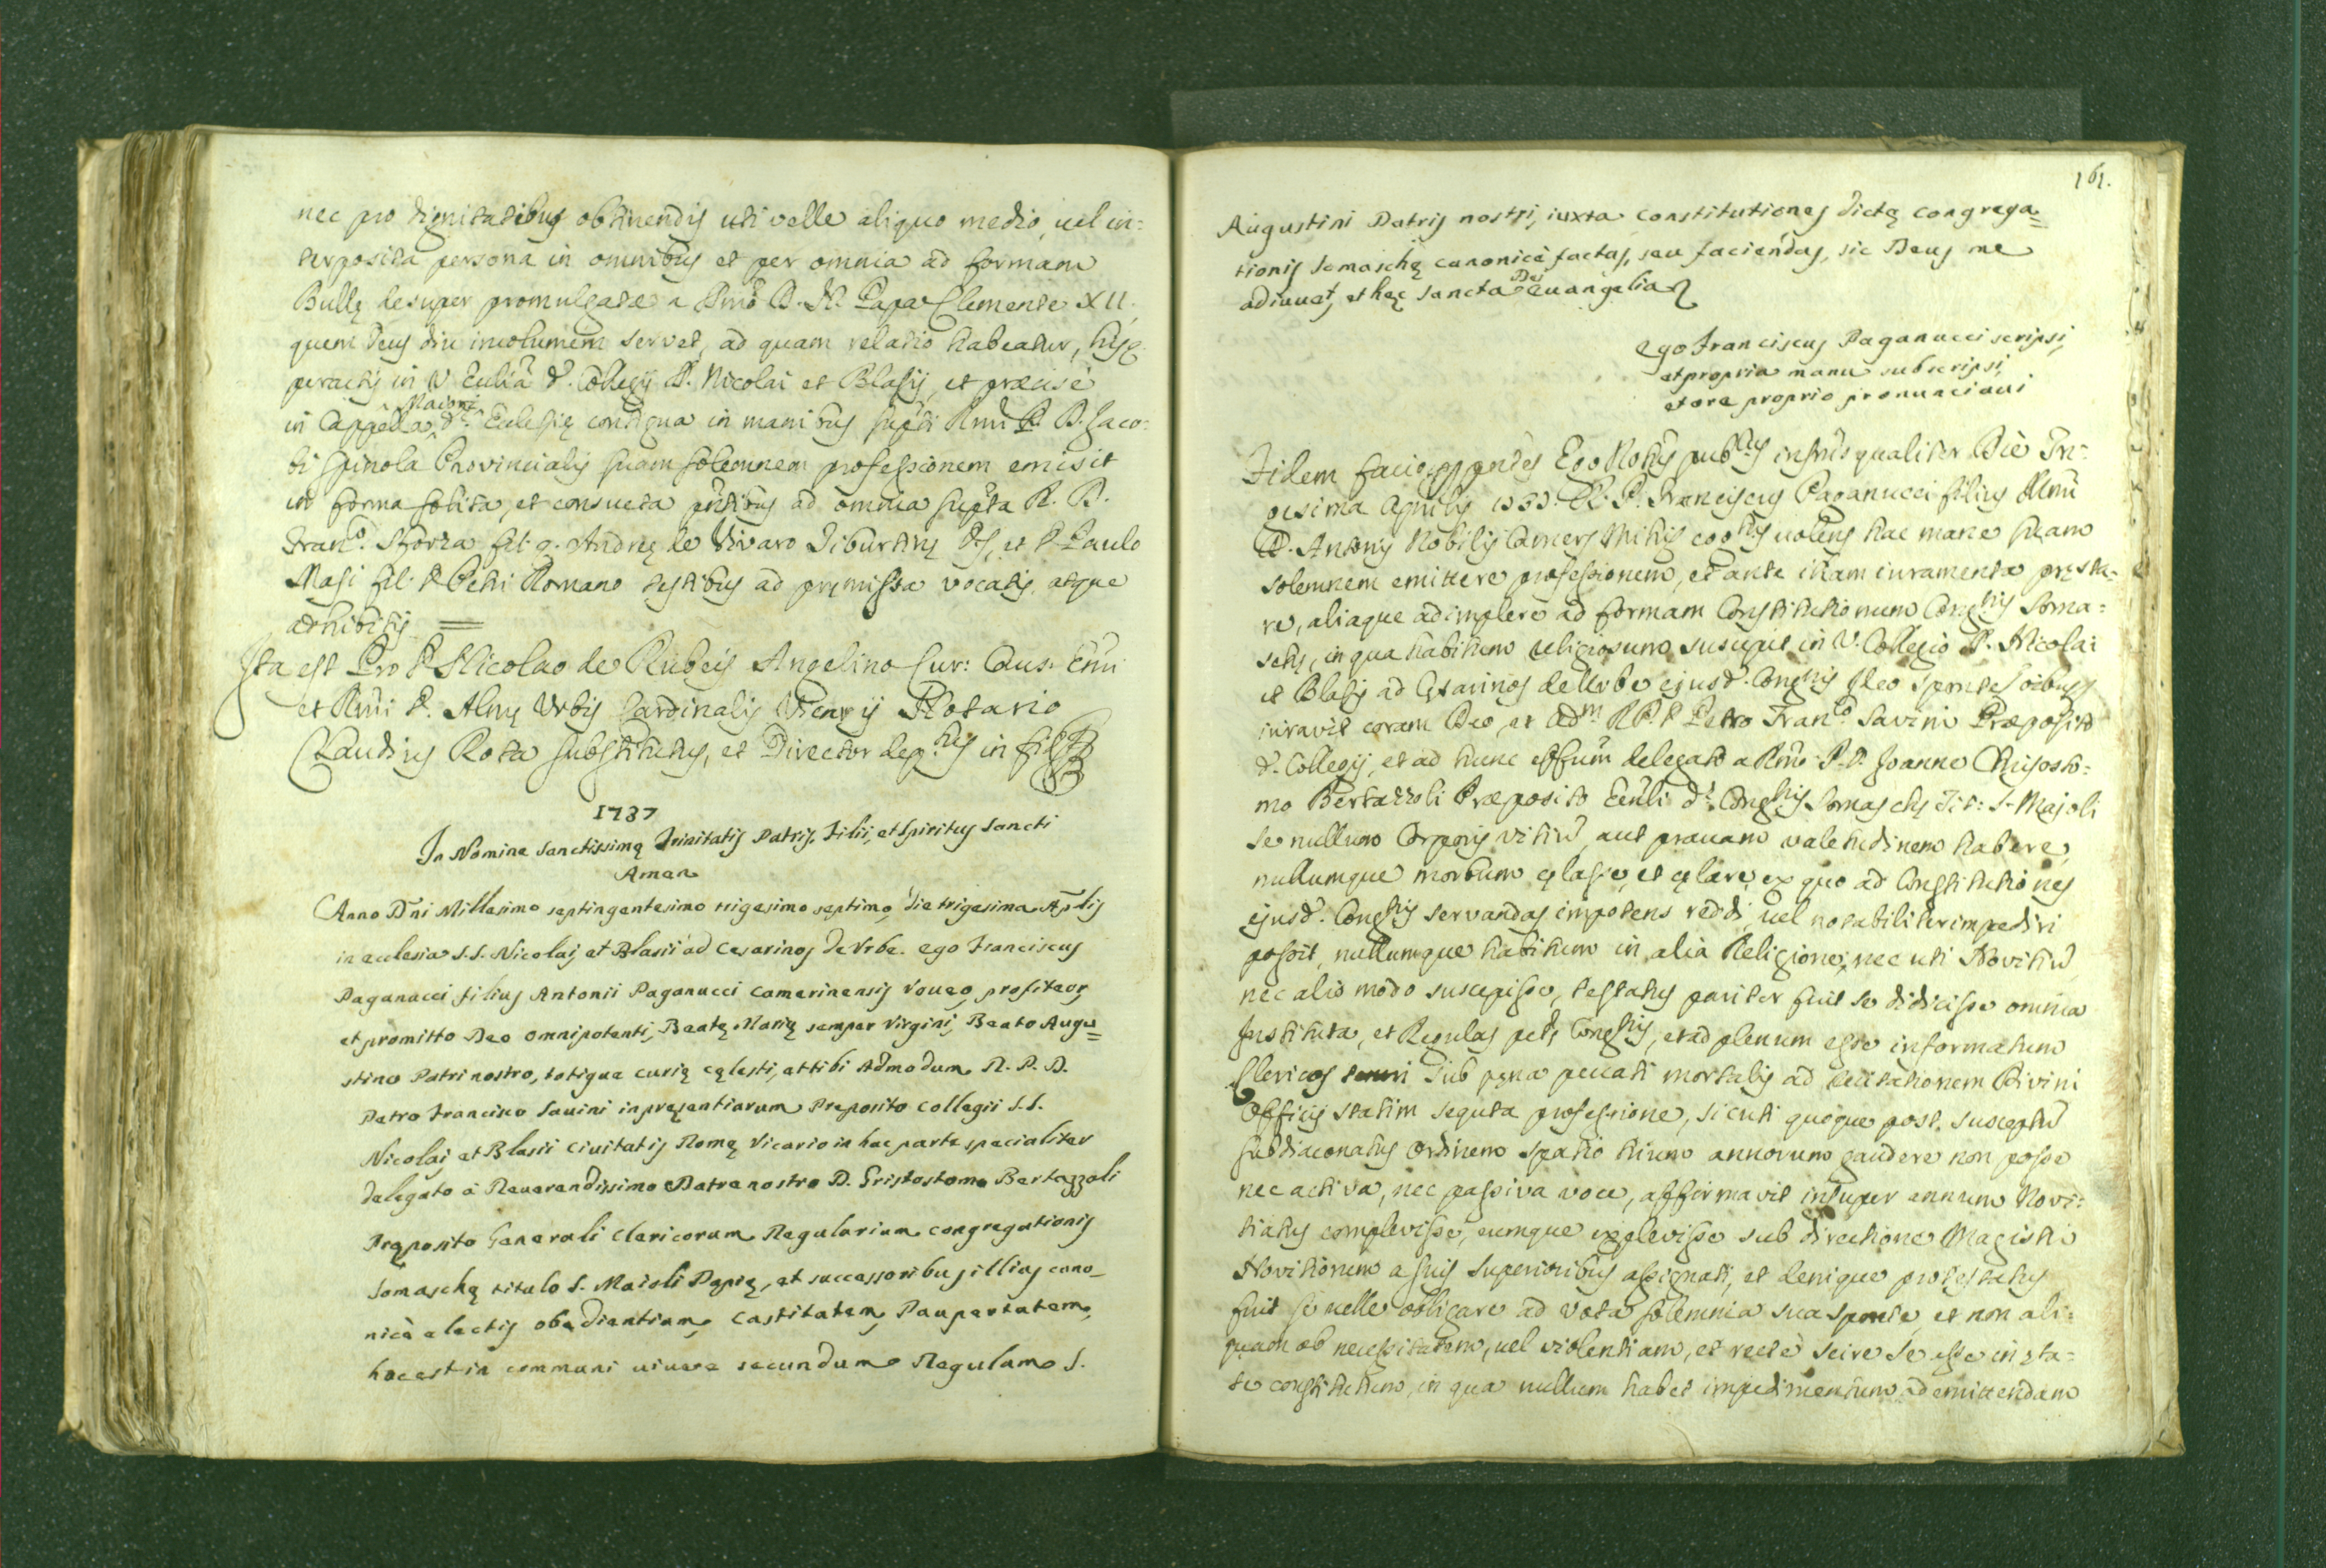 nec pro dignitatibus obtinendis uti velle aliquo medio, vel in:
terposita persona in omnibus et per omnia ad formam
Bullę desuper promulgatæ a Smo D. N. Papa Clemente XII,
quem Deus diu incolumem servet, ad quam relatio habeatur, hisq.
peractis in V. Ecclia d. Collegij SS. Nicolai et Blasij, et præcise
in Cappella Maiori d. Eclesię contigua in manibus supti Rmi P. D. Jaco:
bi Spinola Provincialis suam solemnem professionem emisit
in forma solita, et consueta pntibus ad omnia supta R. D.
Franco. Sforza fil. q. Andreę de Vivaro Tiburtinę Ds, et D. Paulo
Masi fil. D. Petri Romano testibus ad pręmissa vocatis, atque
adhibitis =
Ita est Pro D. Nicolao de Rubeis Angelino Cur: Caus. Emi
et Rmi D. Almę Urbis Cardinalis Vicarij Notario
Claudius Rota substitutus, et Director depus in fid
1737
In Nomine Sanctissimę Trinitatis Patris, Filii, et Spiritus Sancti
Amen
Anno Dñi Millesimo septingentesimo trigesimo septimo, die trigesima Aplis
in ecclesia S.S. Nicolai, et Blasii ad Cesarinos de Vrbe. ego Franciscus
Paganucci filius Antonii Paganucci Camerinensis Voueo, profiteor,
et promitto Deo omnipotenti, Beatę Marię semper Virgini, Beato Augu=
stino Patri nostro, totique curię cęlesti, et tibi Admodum R. P. D.
Petro Francisco Sauini in pręsentiarum Preposito Collegii S.S.
Nicolai, et Blasii Ciuitatis Romę Vicario in hac parte specialiter
delegato à Reuerendissimo Patre nostro D. Gristostomo Bertazzoli
Pręposito Generali Clericorum Regularium Congregationis
Somaschę titulo S. Maioli Papię, et successoribus illius cano_
nicè electis obedientiam, Castitatem, Paupertatem,
hoc est in communi uiuere secundum Regulam S.
161.
Augustini Patris nostri, iuxta Constitutiones dictę congrega=
tionis Somaschę canonicè factas, seu faciendas, sic Deus me
adiuuet, et hęc sancta Dei euangelia
Ego Franciscus Paganucci scripsi,
et propria manu subscripsi,
et ore proprio pronunciaui
Fidem facio Ego Notus pubcus infrus qualiter Die Tri:
gesima Aprilis 1737. R. D. Franciscus Paganucci filius Illmi
D. Antonij Nobilis Camers Mihi cogtus volens hac mane suam
solemnem emittere professionem, et ante illam iuramenta pręsta=
re, aliaque adimplere ad formam Constitutionum Congnis Soma=
schę, in qua habitum religiosum suscepit in V. Collegio SS. Nicolai
et Blasij ad Cęsarinos de Urbe ejusd. Congnis Ideo
iuravit coram Deo, et adm R. P. D. Petro Franco Savini Præposito
d. Collegij, et ad hunc effum delegato a Rmo P. D. Joanne Chrisosto:
mo Bertazzoli Præposito Genli d. Congnis Somaschę Tit: S. Majoli
se nullum Corporis vitiu, aut pravam valetudinem habere,
nullumque morbum cęlasse, et cęlare, ex quo ad Constitutiones
ejusd. Congnis servandas impotens reddi, vel notabiliter impediri
possit, nullumque habitum in alia Religione, nec uti Novitiu,
nec alio modo suscepisse, testatus pariter fuit se didicisse omnia
Instituta, et Regulas Congnis, et ad plenum esse informatum
Clericos teneri sub pęna peccati mortalis ad recitationem Divini
Officij statim sequta professione, sicuti quoque post susceptu
subdiaconatus ordinem spatio trium annorum gaudere non posse
nec activa, nec passiva voce, affirmavit insuper annum Novi:
tiatus complevisse, eumque explevisse sub directione Magistri
Novitiorum a suis Superioribus assignati, et denique protestatus
fuit se velle obligare ad vota solemnia sua sponte, et non ali:
quam ob necessitatem, vel violentiam, et recte scire se esse in ęta=
te constitutum, in qua nullum habet impedimentum ad emittendam